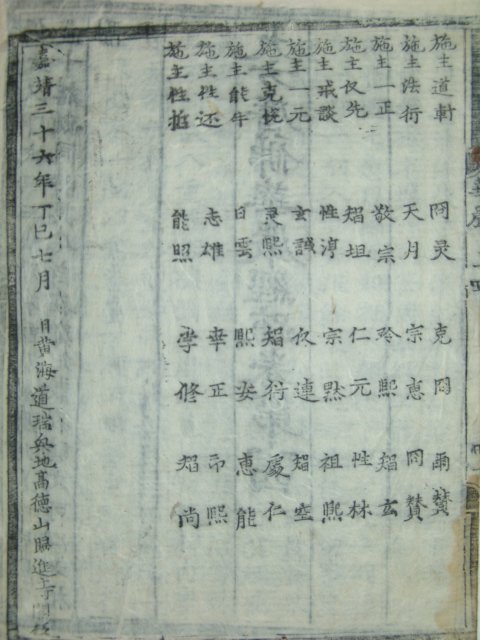 施主道軒 冏灵 克冏 雨賛
施主法衍 天月 宗恵 冏賛
施主一正 敬宗 玲熙 㫼玄
施主仅先 㫼坦 仁元 性林
施主戒談 性淳 宗黙 祖熙
施主一元 玄識 仅連 㫼空
施主克悅 灵熙 㫼行 處仁
施主能牛 白雲 熙安 恵能
施主性还 志雄 幸正 印熙
施主性 能照 学修 㫼尚
嘉靖三十六年丁巳七月 日黄海道瑞興地高德山歸進寺開